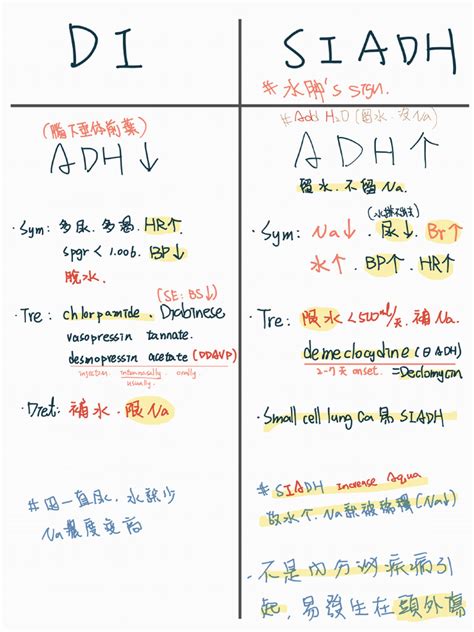 DI
(腦下垂体前葉)
ADH↓
· Sym: 多尿、多渴. HR↑
spgr < 1.006. BP↓
脫水
(SE: BS↓)
· Tre: chlorpamide、Diabinese
vasopressin tannate.
desmopressin acetate (DDAVP)
injection intennasally. orally
usually.
· Diet: 補水、限Na
#因一直尿、水缺少
Na濃度变高
SIADH
#水肿's sign.
#Add H₂O (留水、沒Na)
ADH↑
留水、不留Na.
(水排不掉)
· Sym: Na↓. 尿↓. Br↑
水↑. BP↑. HR↑
· Tre: 限水<500ml/天. 補Na.
demeclocycline (抗ADH)
2-7天 onset. =Declomycin
· Small cell lung Ca 易 SIADH
#SIADH increase Aqua
故水↑、Na就被稀釋(Na↓)
· 不是内分泌疾病引
起,易發生在頭外傷